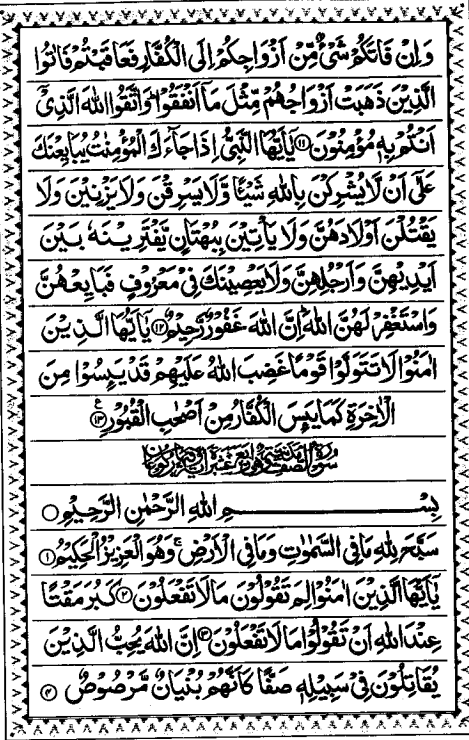 وَاِنْ فَاتَكُمْ شَىْءٌ مِّنْ اَزْوَاجِكُمْ اِلَى الْكُفَّارِ فَعَاقَبْتُمْ فَاٰتُوا
الَّذِيْنَ ذَهَبَتْ اَزْوَاجُهُمْ مِّثْلَ مَاۤ اَنْفَقُوْا ؕ وَاتَّقُوا اللّٰهَ الَّذِىْۤ
اَنْتُمْ بِهٖ مُؤْمِنُوْنَ ۝۱۱ يٰۤاَيُّهَا النَّبِىُّ اِذَا جَآءَكَ الْمُؤْمِنٰتُ يُبَايِعْنَكَ
عَلٰۤى اَنْ لَّا يُشْرِكْنَ بِاللّٰهِ شَيْـًٔا وَّلَا يَسْرِقْنَ وَلَا يَزْنِيْنَ وَلَا
يَقْتُلْنَ اَوْلَادَهُنَّ وَلَا يَاْتِيْنَ بِبُهْتَانٍ يَّفْتَرِيْنَهٗ بَيْنَ
اَيْدِيْهِنَّ وَاَرْجُلِهِنَّ وَلَا يَعْصِيْنَكَ فِىْ مَعْرُوْفٍ فَبَايِعْهُنَّ
وَاسْتَغْفِرْ لَهُنَّ اللّٰهَ ؕ اِنَّ اللّٰهَ غَفُوْرٌ رَّحِيْمٌ ۝۱۲ يٰۤاَيُّهَا الَّذِيْنَ
اٰمَنُوْا لَا تَتَوَلَّوْا قَوْمًا غَضِبَ اللّٰهُ عَلَيْهِمْ قَدْ يَئِسُوْا مِنَ
الْاٰخِرَةِ كَمَا يَئِسَ الْكُفَّارُ مِنْ اَصْحٰبِ الْقُبُوْرِ ۝۱۳ ع
سُوْرَةُ الصَّفِّ
بِسْمِ اللّٰهِ الرَّحْمٰنِ الرَّحِيْمِ ۝
سَبَّحَ لِلّٰهِ مَا فِى السَّمٰوٰتِ وَمَا فِى الْاَرْضِ ۚ وَهُوَ الْعَزِيْزُ الْحَكِيْمُ ۝۱
يٰۤاَيُّهَا الَّذِيْنَ اٰمَنُوْا لِمَ تَقُوْلُوْنَ مَا لَا تَفْعَلُوْنَ ۝۲ كَبُرَ مَقْتًا
عِنْدَ اللّٰهِ اَنْ تَقُوْلُوْا مَا لَا تَفْعَلُوْنَ ۝۳ اِنَّ اللّٰهَ يُحِبُّ الَّذِيْنَ
يُقَاتِلُوْنَ فِىْ سَبِيْلِهٖ صَفًّا كَاَنَّهُمْ بُنْيَانٌ مَّرْصُوْصٌ ۝۴